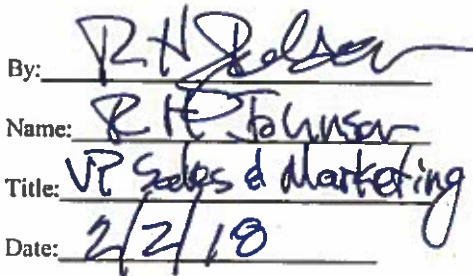 By: RH Johnson
Name: R H Johnson
Title: VP Sales & Marketing
Date: 2/2/18